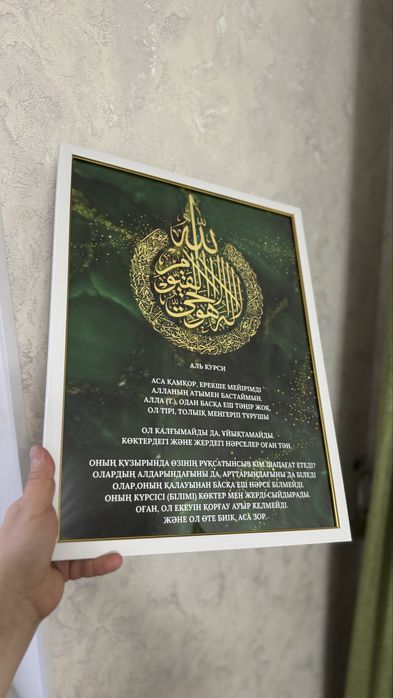 الله لا إله إلا هو الحي القيوم
АЛЬ КУРСИ
АСА ҚАМҚОР, ЕРЕКШЕ МЕЙІРІМДІ
АЛЛАНЫҢ АТЫМЕН БАСТАЙМЫН.
АЛЛА (Т.), ОДАН БАСҚА ЕШ ТӘҢІР ЖОҚ,
ОЛ ТІРІ, ТОЛЫҚ МЕҢГЕРІП ТҰРУШЫ
ОЛ ҚАЛҒЫМАЙДЫ ДА, ҰЙЫҚТАМАЙДЫ.
КӨКТЕРДЕГІ ЖӘНЕ ЖЕРДЕГІ НӘРСЕЛЕР ОҒАН ТӘН.
ОНЫҢ ҚҰЗЫРЫНДА ӨЗІНІҢ РҰҚСАТЫНСЫЗ КІМ ШАПАҒАТ ЕТЕДІ?
ОЛАРДЫҢ АЛДАРЫНДАҒЫНЫ ДА, АРТТАРЫНДАҒЫНЫ ДА БІЛЕДІ
ОЛАР,ОНЫҢ ҚАЛАУЫНАН БАСҚА ЕШ НӘРСЕ БІЛМЕЙДІ.
ОНЫҢ КҮРСІСІ (БІЛІМІ) КӨКТЕР МЕН ЖЕРДІ СЫЙДЫРАДЫ.
ОҒАН, ОЛ ЕКЕУІН ҚОРҒАУ АУЫР КЕЛМЕЙДІ.
ЖӘНЕ ОЛ ӨТЕ БИІК, АСА ЗОР.